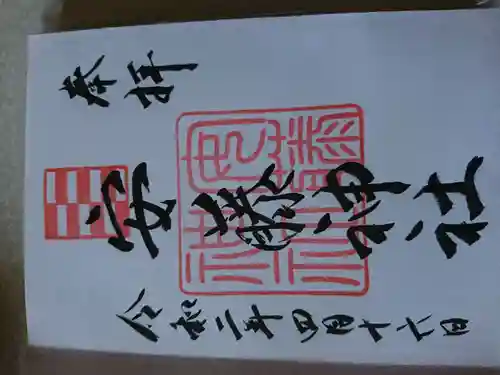 奉拝
安 神社
令和二年四月十六日